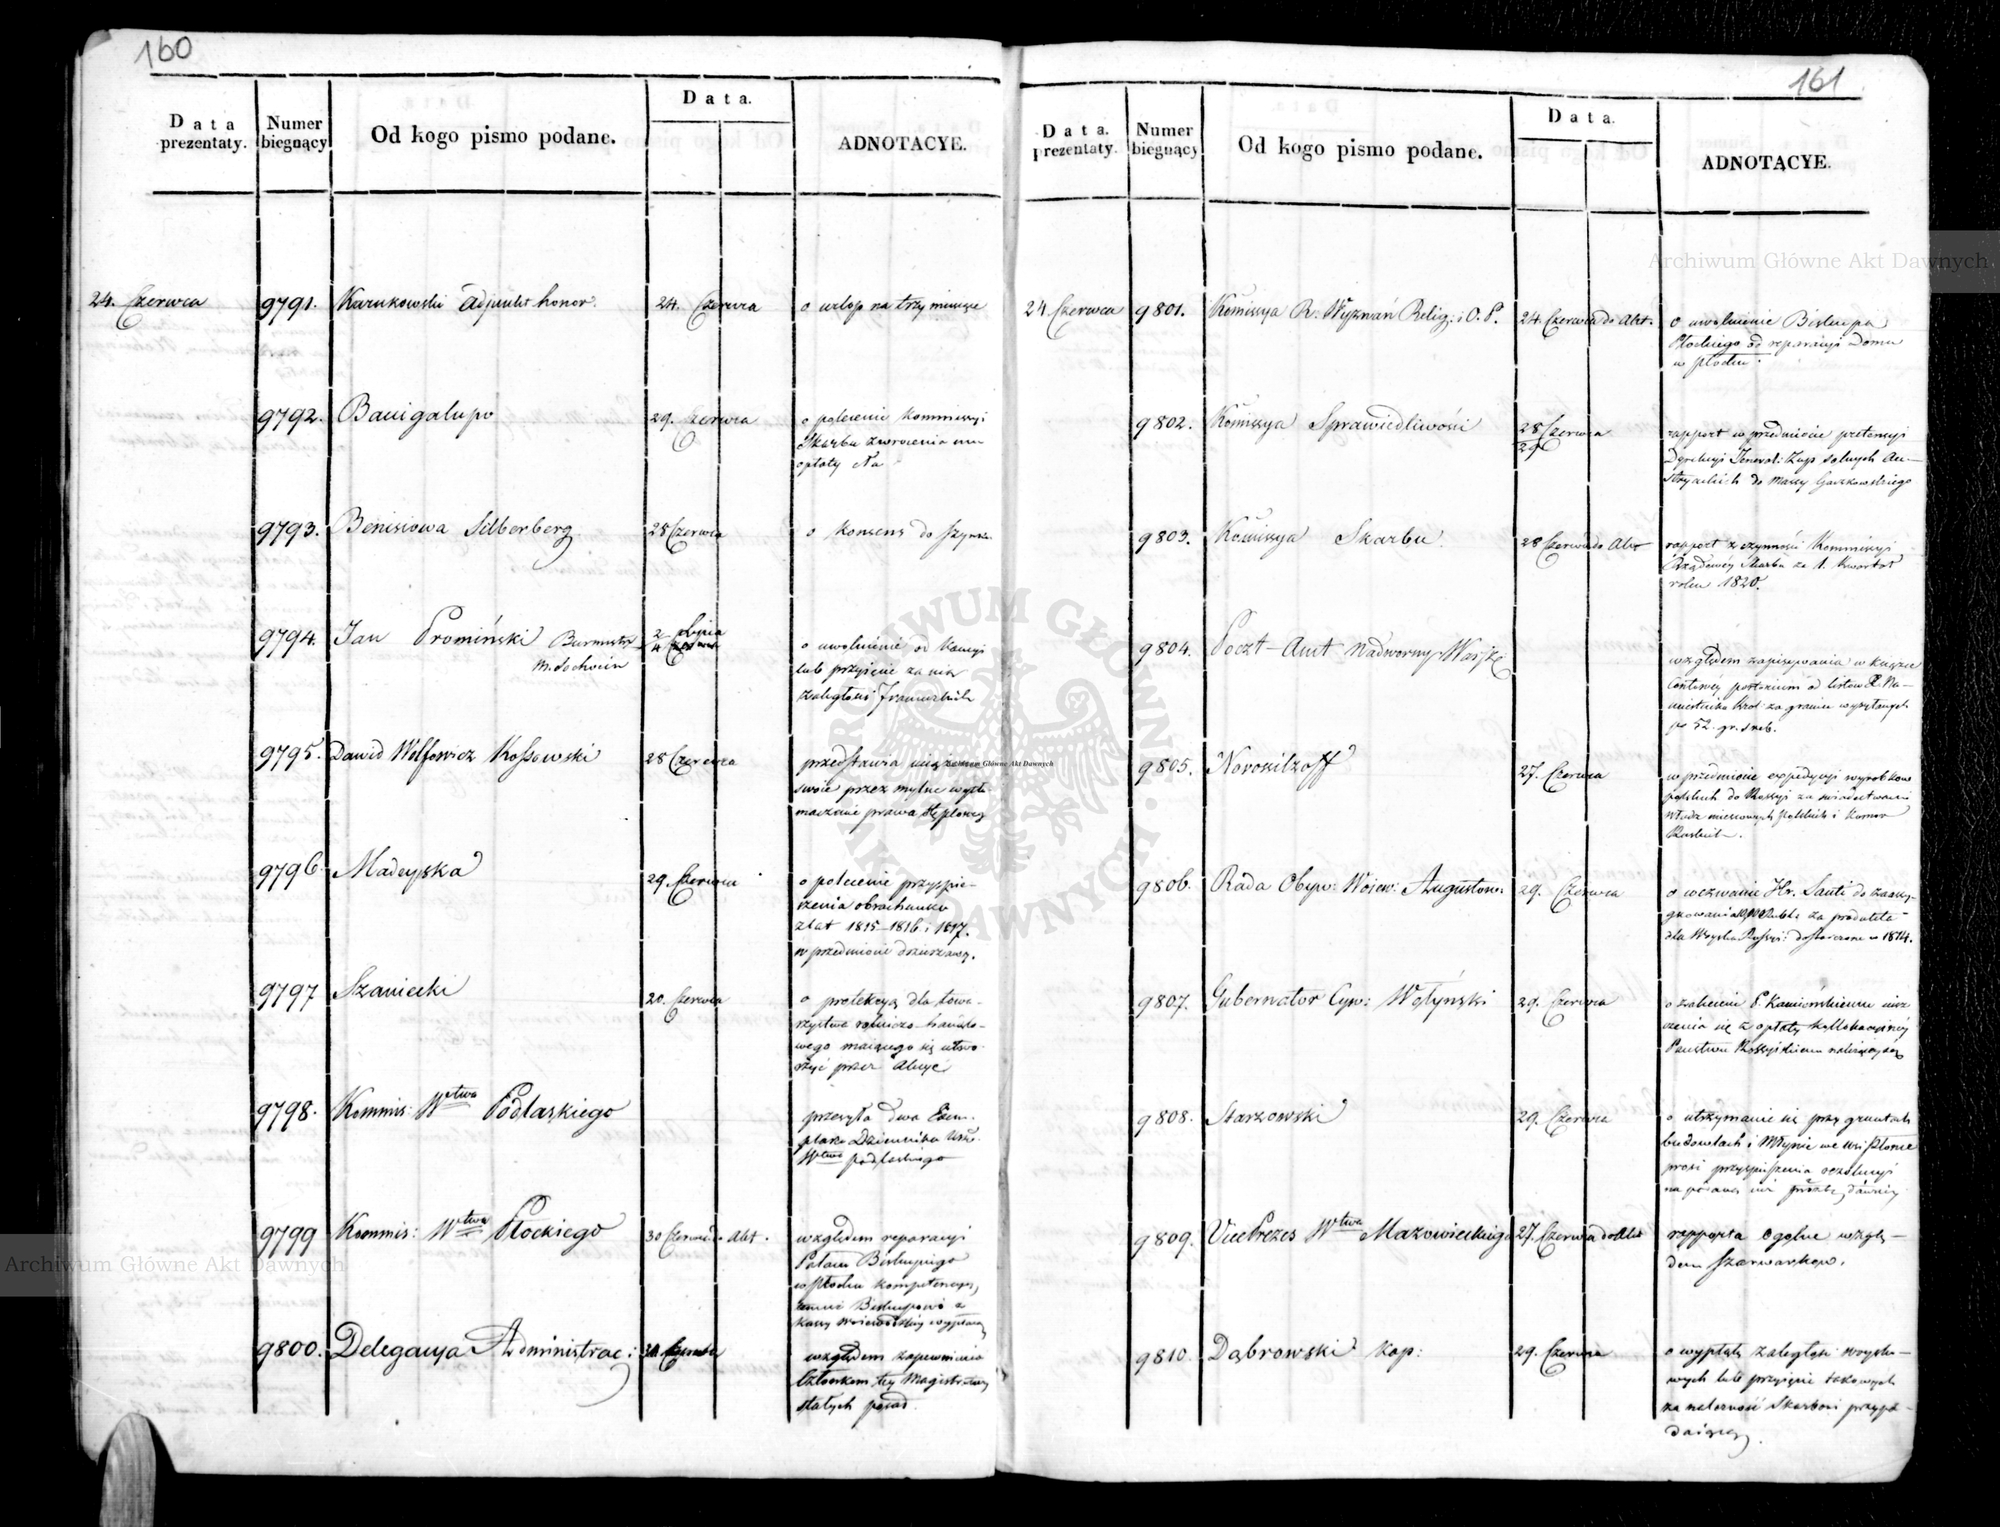 160
Data prezentaty.
Numer biegnący
Od kogo pismo podane.
Data.
ADNOTACYE.
24. Czerwca
9791.
Karnkowski Adjunkt honor.
24. Czerwca
o urlop na trzy miesiące
9792.
Bacigalupo
29. Czerwca
o polecenie Kommissyi
Skarbu zwrócenia mu
opłaty
9793.
Benisiowa Silberberg
28 Czerwca
o konsens do szynku
9794.
Jan Promiński Burmistrz
M. Sochocin
2 Lipca
o uwolnienie od
lub przyjęcie za nią
zaległości
9795.
Dawid Wolfowicz Kossowski
28 Czerwca
przedstawia
swoie przez mylne wytłu-
maczenie prawa
9796.
Madeyska
29. Czerwca
o polecenie przyspie-
szenia obrachunku
z lat 1815-1816 i 1817.
w przedmiocie dzierżawy.
9797
Szaniecki
20. Czerwca
o protekcyą dla towa-
rzystwa rolniczo-handlo-
wego maiącego się utwo-
rzyć przez Akcye
9798.
Kommis: Wtwa Podlaskiego
przesyła dwa Exem-
plarze Dziennika
Wtwa podlaskiego
9799
Kommis: Wtwa Płockiego
30 Czerwca do Akt.
względem reparacyi
Pałacu Biskupiego
w Płocku
Biskupowi z
kassy woiewódzkiey
9800.
Delegacya Administrac:
względem zapewnienia
Członkom tey Magistratury
stałych posad.
161
Data. prezentaty.
Numer biegnący
Od kogo pismo podane.
Data.
ADNOTACYE.
24 Czerwca
9801.
Kommissya R: Wyznań Relig: i O. P.
24. Czerwca do Akt.
o uwolnienie Biskupa
Płockiego od reparacyi Domu
w Płocku.
9802.
Kommissya Sprawiedliwości
28 Czerwca
29
rapport w przedmiocie pretensyi
Dyrekcyi Jeneral: Żup solnych Au-
stryackich do massy
9803.
Kommissya Skarbu
28 Czerwca do Akt
rapport z czynności Kommissyi
Rządowey Skarbu za 1. kwartał
roku 1820.
9804.
Poczt-Amt Nadworny Warsz:
względem zapisywania w księdze
portorium od listów X. Na-
miestnika Król: za granicę wysyłanych
po 52. gr. sreb.
9805.
Novosilzoff
27. Czerwca
w przedmiocie expedycyi wyrobków
polskich do Rossyi za świadectwami
Władz mieyscowych polskich i Komor
9806.
Rada Obyw: Woiew: Augustow:
29. Czerwca
o wezwanie Hr. Santi do
za produkta
dla Woyska Rossyi: dostarczone w 1814.
9807.
Gubernator Cyw: Wołyński
29. Czerwca
o zalecenie P. Kamieńskiemu uisz-
czenia się z opłaty kollokacyiney
Państwu Rossyiskiemu należącey się
9808.
Starzowski
29. Czerwca
o utrzymanie się przy gruntach
budowlach i Młynie we wsi Płonce
prosi przyspieszenia rezolucyi
na podaną iuż prośbę dawniey
9809.
Vice Prezes Wtwa Mazowieckiego
27. Czerwca do Akt
rapporta ogólne wzglę-
dem szarwarków.
9810.
Dąbrowski Kap:
29. Czerwca
o wypłatę zaległości woysko-
wych lub przyięcie takowych
za należność Skarbowi przypa-
daiącą.
Archiwum Główne Akt Dawnych
Archiwum Główne Akt Dawnych
Archiwum Główne Akt Dawnych
ARCHIWUM GŁÓWNE AKT DAWNYCH